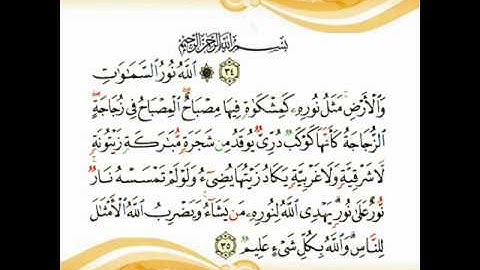 بِسْمِ اللَّهِ الرَّحْمَٰنِ الرَّحِيمِ
﴿٣٤﴾ ۞ اللَّهُ نُورُ السَّمَاوَاتِ
وَالْأَرْضِ ۚ مَثَلُ نُورِهِ كَمِشْكَوٰةٍ فِيهَا مِصْبَاحٌ ۖ الْمِصْبَاحُ فِي زُجَاجَةٍ ۖ
الزُّجَاجَةُ كَأَنَّهَا كَوْكَبٌ دُرِّيٌّ يُوقَدُ مِن شَجَرَةٍ مُّبَٰرَكَةٍ زَيْتُونَةٍ
لَّا شَرْقِيَّةٍ وَلَا غَرْبِيَّةٍ يَكَادُ زَيْتُهَا يُضِيٓءُ وَلَوْ لَمْ تَمْسَسْهُ نَارٌ ۚ
نُّورٌ عَلَىٰ نُورٍ ۗ يَهْدِي اللَّهُ لِنُورِهِ مَن يَشَآءُ ۚ وَيَضْرِبُ اللَّهُ الْأَمْثَٰلَ
لِلنَّاسِ ۗ وَاللَّهُ بِكُلِّ شَيْءٍ عَلِيمٌ ﴿٣٥﴾